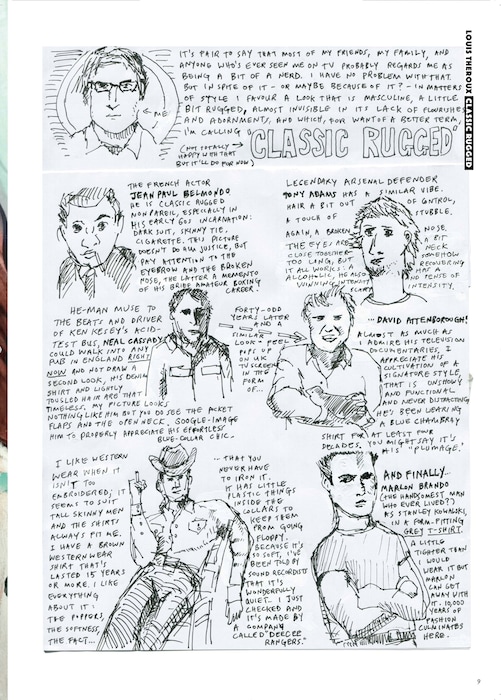 LOUIS THEROUX CLASSIC RUGGED
IT'S FAIR TO SAY THAT MOST OF MY FRIENDS, MY FAMILY, AND
ANYONE WHO'S EVER SEEN ME ON TV PROBABLY REGARDS ME AS
BEING A BIT OF A NERD. I HAVE NO PROBLEM WITH THAT.
BUT IN SPITE OF IT - OR MAYBE BECAUSE OF IT? - IN MATTERS
OF STYLE I FAVOUR A LOOK THAT IS MASCULINE, A LITTLE
BIT RUGGED, ALMOST INVISIBLE IN ITS LACK OF FLOURISHES
AND ADORNMENTS, AND WHICH, FOR WANT OF A BETTER TERM,
I'M CALLING "CLASSIC RUGGED"
ME
(NOT TOTALLY
HAPPY WITH THAT
BUT IT'LL DO FOR NOW)
THE FRENCH ACTOR
JEAN PAUL BELMONDO
HE IS CLASSIC RUGGED
NON PAREIL, ESPECIALLY IN
HIS EARLY 60S INCARNATION:
DARK SUIT, SKINNY TIE,
CIGARETTE. THIS PICTURE
DOESN'T DO HIM JUSTICE, BUT
PAY ATTENTION TO THE
EYEBROW AND THE BROKEN
NOSE, THE LATTER A MEMENTO
OF HIS BRIEF AMATEUR BOXING
CAREER
LEGENDARY ARSENAL DEFENDER
TONY ADAMS HAS A SIMILAR VIBE.
HAIR A BIT OUT OF CONTROL,
A TOUCH OF STUBBLE.
AGAIN, A BROKEN NOSE.
THE EYES ARE A BIT
CLOSE TOGETHER NECK
TOO LONG, BUT SOMEHOW
IT ALL WORKS: A RECOVERING
ALCOHOLIC, HE ALSO HAS A
WINNING INTENSITY
HE-MAN MUSE TO
THE BEATS AND DRIVER
OF KEN KESEY'S ACID-
TEST BUS, NEAL CASSADY
COULD WALK INTO ANY
PUB IN ENGLAND RIGHT
NOW AND NOT DRAW A
SECOND LOOK, HIS DENIM
SHIRT AND LIGHTLY
TOUSLED HAIR ARE THAT
TIMELESS. MY PICTURE LOOKS
NOTHING LIKE HIM BUT YOU DO SEE THE POCKET
FLAPS AND THE OPEN NECK. GOOGLE-IMAGE
HIM TO PROPERLY APPRECIATE HIS EFFORTLESS
BLUE-COLLAR CHIC...
FORTY-ODD
YEARS LATER
AND A
SIMILAR
LOOK + FEEL
POPS UP
ON UK
TV SCREENS
IN THE
FORM
OF...
... DAVID ATTENBOROUGH!
ALMOST AS MUCH AS
I ADMIRE HIS TELEVISION
DOCUMENTARIES, I
APPRECIATE HIS
CULTIVATION OF A
SIGNATURE STYLE,
THAT IS UNSHOWY
AND FUNCTIONAL
AND NEVER DISTRACTING.
HE'S BEEN WEARING
A BLUE CHAMBRAY
SHIRT FOR AT LEAST FOUR
DECADES. YOU MIGHT SAY IT'S
HIS "PLUMAGE."
I LIKE WESTERN
WEAR WHEN IT
ISN'T TOO
EMBROIDERED; IT
SEEMS TO SUIT
TALL SKINNY MEN
AND THE SHIRTS
ALWAYS FIT ME.
I HAVE A BROWN
WESTERN WEAR
SHIRT THAT'S
LASTED 15 YEARS
OR MORE. I LIKE
EVERYTHING
ABOUT IT:
THE POPPERS,
THE SOFTNESS,
THE FACT...
... THAT YOU
NEVER HAVE
TO IRON IT.
IT HAS LITTLE
PLASTIC THINGS
INSIDE THE
COLLARS TO
KEEP THEM
FROM GOING
FLOPPY.
BECAUSE IT'S
SO SOFT, I'VE
BEEN TOLD BY
SOUND RECORDISTS
THAT IT'S
WONDERFULLY
QUIET. I JUST
CHECKED AND
IT'S MADE BY
A COMPANY
CALLED "DEECEE
RANGERS."
AND FINALLY...
MARLON BRANDO
(THE HANDSOMEST MAN
WHO EVER LIVED?)
AS STANLEY KOWALSKI,
IN A FORM-FITTING
GREY T-SHIRT.
A LITTLE
TIGHTER THAN
I WOULD
WEAR IT BUT
MARLON
CAN GET
AWAY WITH
IT. 10,000
YEARS OF
FASHION
CULMINATES
HERE.
9